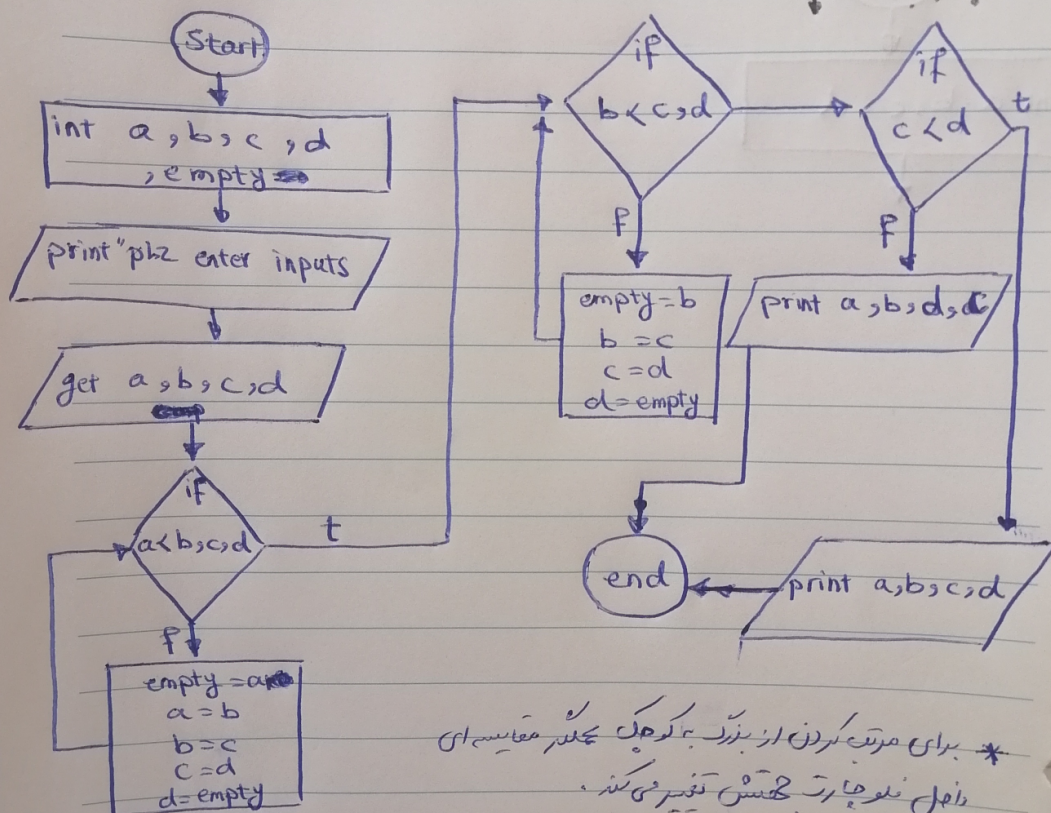 Start
int a, b, c, d
, empty
print "plz enter inputs
get a, b, c, d
if
a<b,c,d
t
f
empty = a
a = b
b = c
c = d
d = empty
if
b<c,d
f
empty = b
b = c
c = d
d = empty
if
c<d
t
f
print a,b,d,c
print a,b,c,d
end
* برای مرتب کردن از بزرگ به کوچک عملگر مقایسه ای
داخل فلوچارت جهتش تغییر می کند.